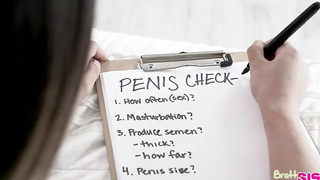 PENIS CHECK-
1. How often (sex)?
2. Masturbation?
3. Produce semen?
- thick?
- how far?
4. Penis size?
BrattySIS